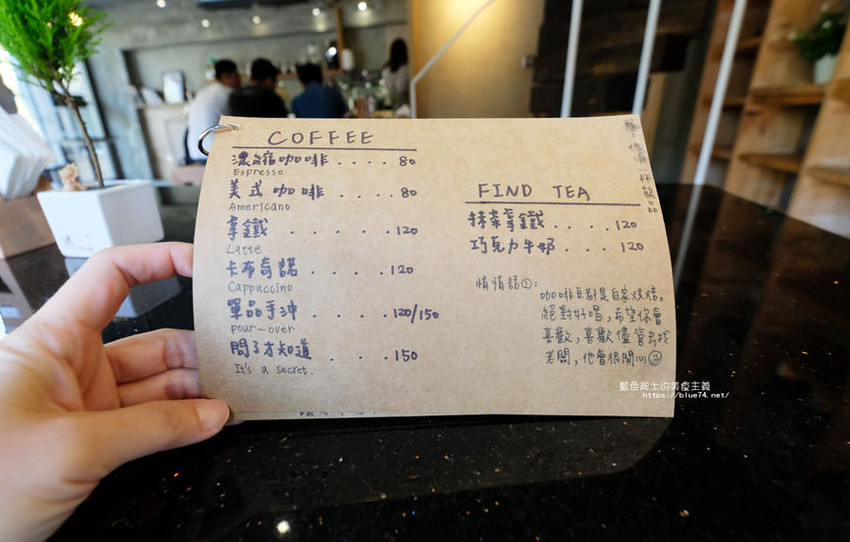 COFFEE
濃縮咖啡 .... 80
Espresso
美式咖啡 .... 80
Americano
拿鐵 ..... 120
Latte
卡布奇諾 .... 120
Cappuccino
單品手沖 .... 120/150
pour-over
問了才知道 .... 150
It's a secret.
FIND TEA
抹茶拿鐵 .... 120
巧克力牛奶 ... 120
悄悄話①:
咖啡豆都是自家烘焙,
絕對好喝,希望你會
喜歡,喜歡儘管去找
老闆,他會很開心
藍色起士的美食主義
https://blue74.net/